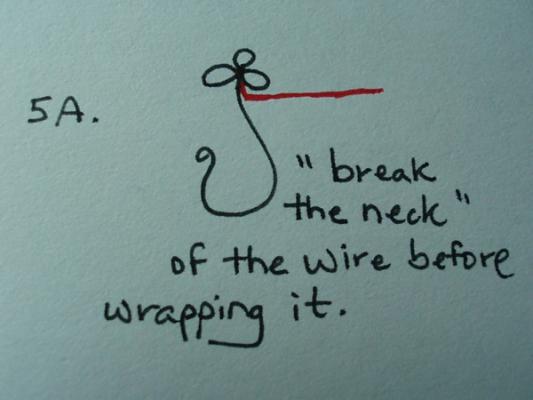 5A.
" break
the neck "
of the wire before
wrapping it.